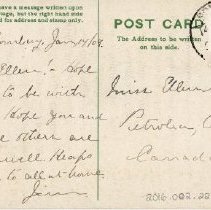 ve a message written upon
tage, but the right hand side
for address and stamp only.
POST CARD
The Address to be written
on this side.
Jan 14/09.
Ellen: I hope
to be write
I hope you and
others are
well
to all at home
Jim
Miss Ellen
Petrolea,
Canada
2016.002.22